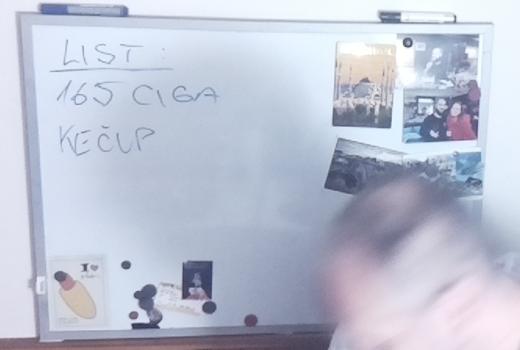 LIST:
165 CIGA
KEČUP
I